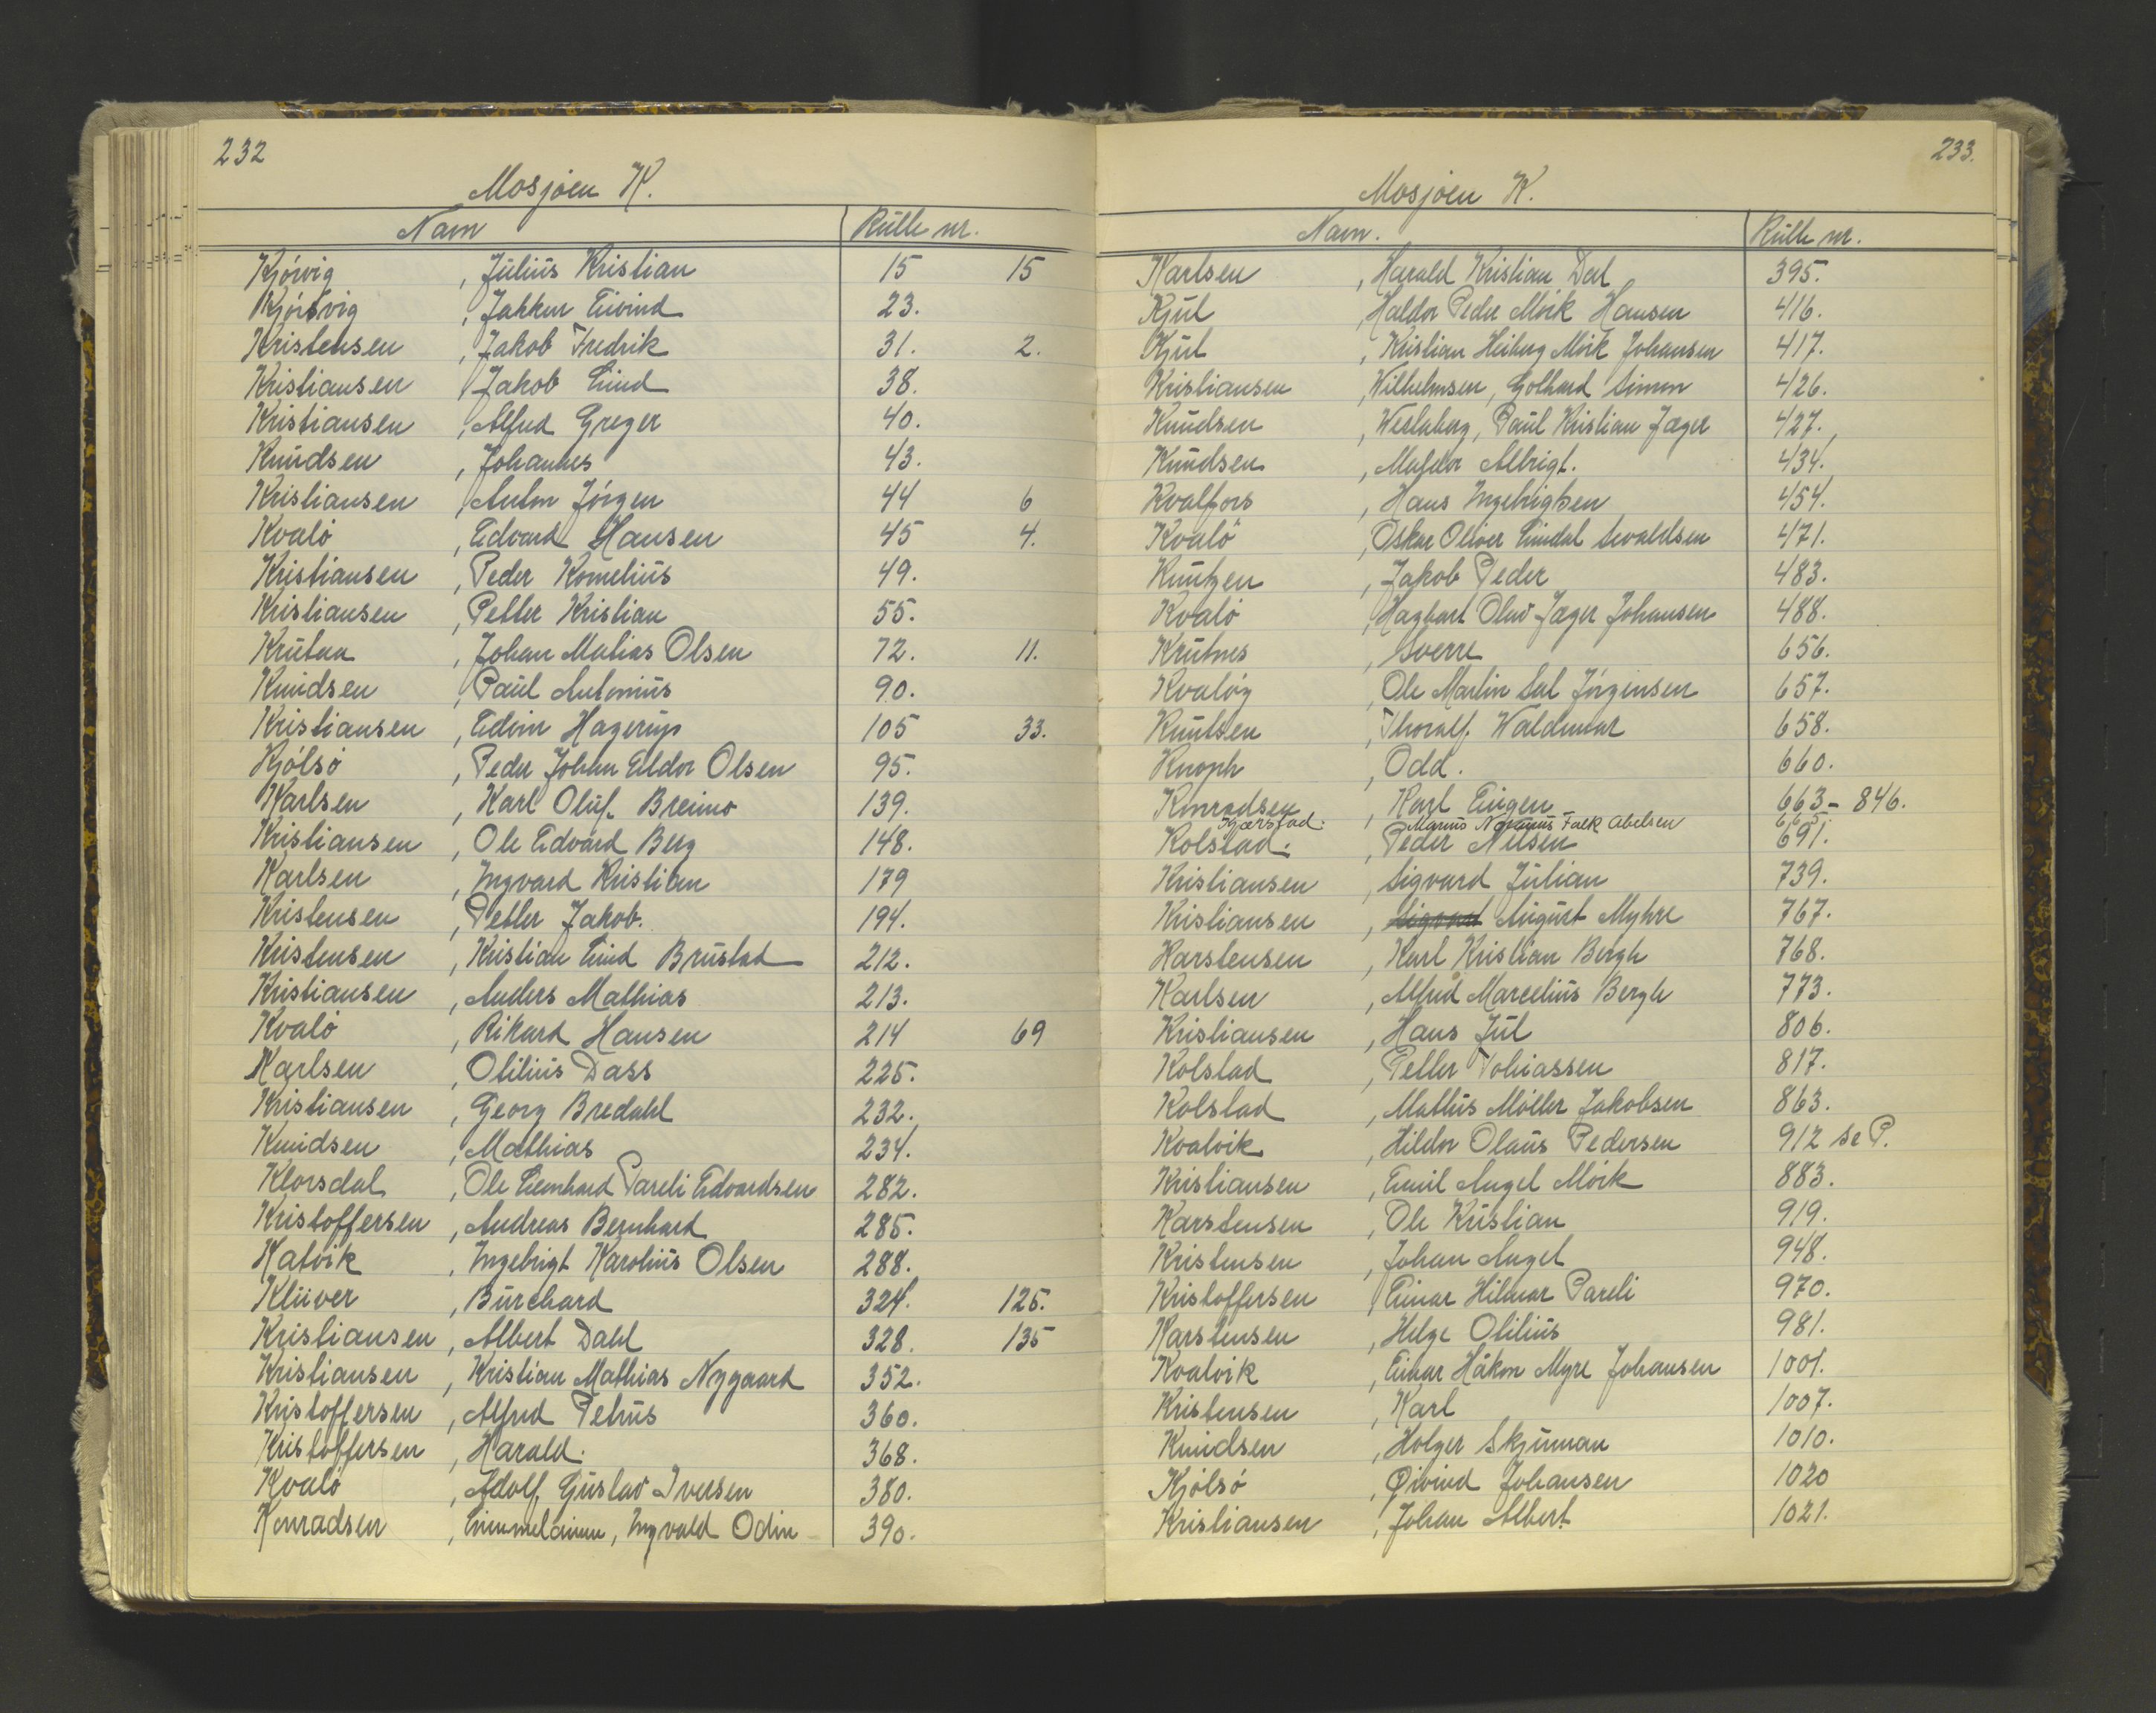 232
Mosjøen K.
Navn Rulle nr.
Kjörvig, Julius Kristian 15 15
Kjörsvig, Eivind 23.
Kristensen, Jakob Fredrik 31. 2.
Kristiansen, Jakob Lind 38.
Kristiansen, Alfred Greger 40.
Knudsen, Johannes 43.
Kristiansen, Anton Jörgen 44 6
Kvalö, Edvard Hansen 45 4.
Kristiansen, Peder Kornelius 49.
Kristiansen, Petter Kristian 55.
Krutaa, Johan Matias Olsen 72. 11.
Knudsen, Paul Antonius 90.
Kristiansen, Edvin Hagerup 105 33.
Kjölsö, Peder Johan Eldor Olsen 95.
Karlsen, Karl Oluf. Breimo 139.
Kristiansen, Ole Edvard Berg 148.
Karlsen, Ingvard Kristian 179
Kristensen, Petter Jakob. 194.
Kristensen, Kristian Lind Brustad 212.
Kristiansen, Anders Mathias 213.
Kvalö, Rikard Hansen 214 69
Karlsen, Otilius Dass 225.
Kristiansen, Georg Bredahl 232.
Knudsen, Mathias 234.
Klovsdal, Ole Leonhard Pareli Edvardsen 282.
Kristoffersen, Andreas Bernhard 285.
Katvik, Ingebrigt Karolius Olsen 288.
Klüver, Burchard 324. 125.
Kristiansen, Albert Dahl 328. 135
Kristiansen, Kristian Mathias Nygaard 352.
Kristoffersen, Alfred Petrus 360.
Kristoffersen, Harald. 368.
Kvalö, Adolf Gustav Iversen 380.
Konradsen, Ingvald Odin 390.
233.
Mosjøen K.
Navn. Rulle nr.
Karlsen, Harald Kristian Dal 395.
Kjul, Haldor Peder Mörk Hansen 416.
Kjul, Kristian Heiberg Mörk Johansen 417.
Kristiansen, Wilhelmsen, Gothard Simon 426.
Knudsen, Westeberg, Paul Kristian Jæger 427.
Knudsen, Albrigt. 434.
Kvalfors, Hans Ingebrigtsen 454.
Kvalö, Oskar Oliver Lindal Sevaldsen 471.
Knutzen, Jakob Peder 483.
Kvalö, Hagbart Olav Jæger Johansen 488.
Krutnes, Sverre 656.
Kvalöy, Ole Martin Sal Jörgensen 657.
Knutsen, Thoralf. Waldemar 658.
Knoph, Odd. 660.
Konradsen, Karl Eugen 663 - 846.
Kjærstad. Marius Falk Abelsen 665.
Kolstad., Peder Nilsen 691.
Kristiansen, Sigvard Julian 739.
Kristiansen, Sigvard August Myhre 767.
Karstensen, Karl Kristian Bergh 768.
Karlsen, Alfred Marcelius Bergh 773.
Kristiansen, Hans Jul 806.
Kolstad, Petter Tobiassen 817.
Kolstad, Mattis Möller Jakobsen 863.
Kvalvik, Hildor Olaus Pedersen 912 se P.
Kristiansen, Emil Angel Mörk 883.
Karstensen, Ole Kristian 919.
Kristensen, Johan Angel 948.
Kristoffersen, Einar Hilmar Pareli 970.
Karstensen, Helge Otilius 981.
Kvalvik, Einar Håkon Myre Johansen 1001.
Kristensen, Karl 1007.
Knudsen, Holger Skjurman 1010.
Kjölsö, Øivind Johansen 1020
Kristiansen, Johan Albert 1021.